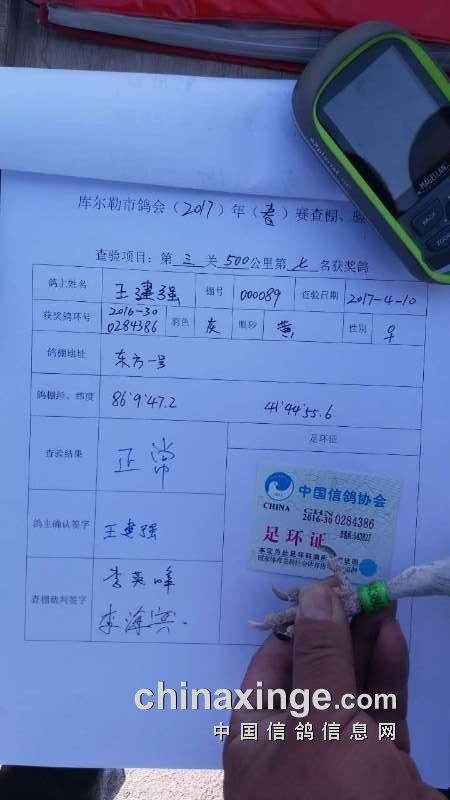 库尔勒市鸽会（2017）年（春）赛查棚、
查验项目：第 三 关 500公里第 七 名获奖鸽
鸽主姓名 王建强 棚号 000089 查验日期 2017-4-10
获奖鸽环号 2016-30 0284386 羽色 灰 眼砂 黄 性别 ♀
鸽棚地址 东方一号
鸽棚经、纬度 86°9'47.2 41°44'55.6
查验结果 正常 足环证
鸽主确认签字 王建强
查棚裁判签字 李英峰
MAGELLAN
BACK
中国信鸽协会
CHINA CHN
2016-30 0284386
足环证
chinaxinge.com
中国信鸽信息网